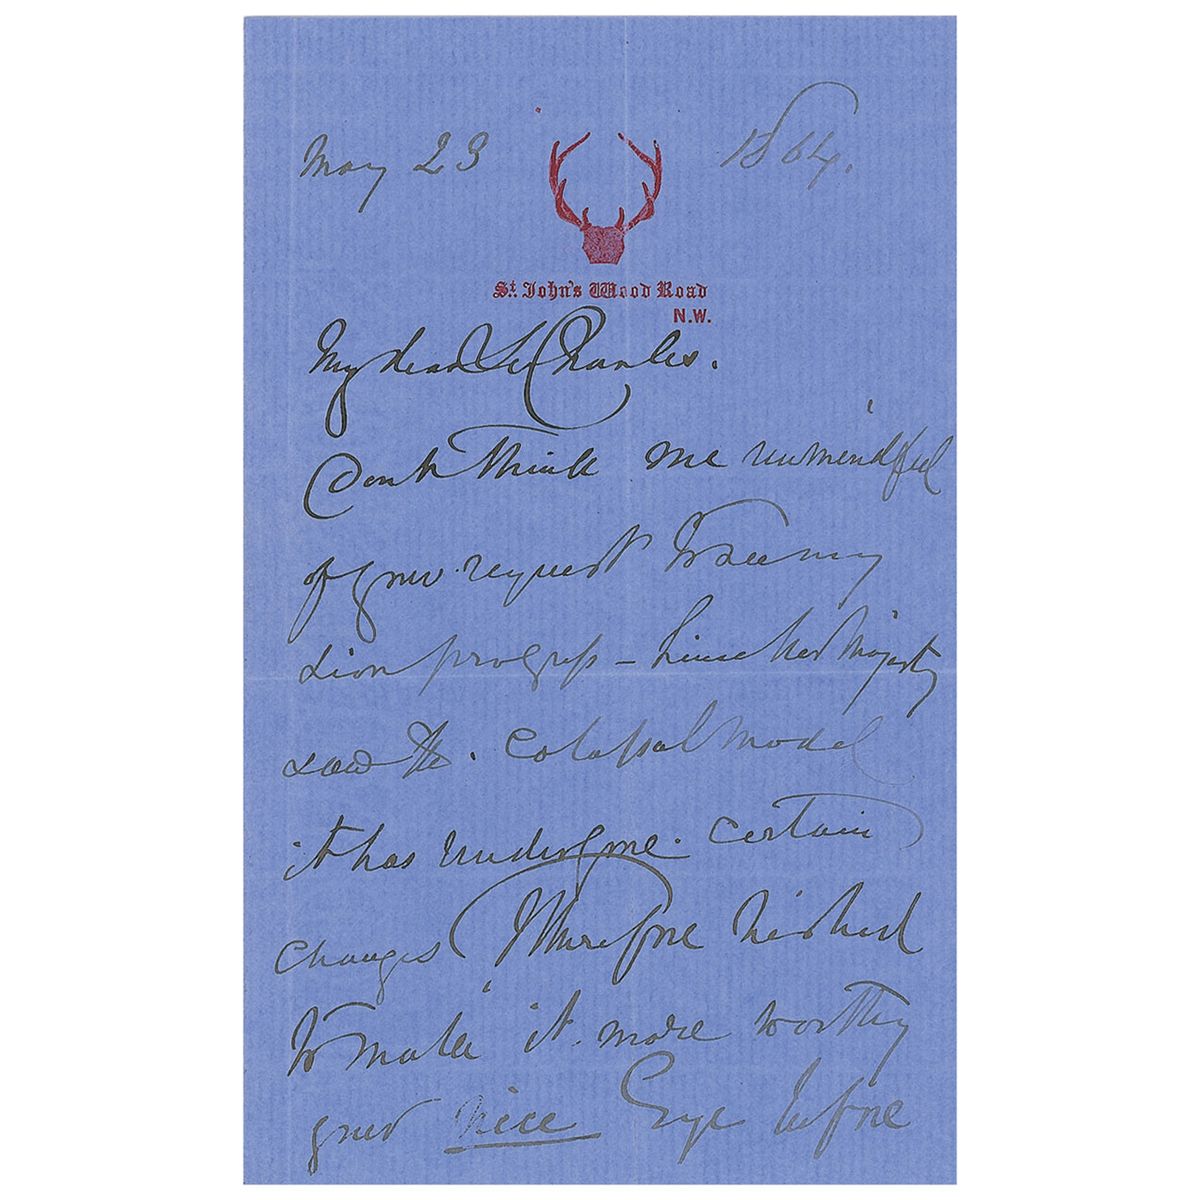 May 23 1864.
St. John's Wood Road
N.W.
My dear Sir Charles.
Dont think me unmindful
of your request to see my
Lion progress - Since her Majesty
saw the. Colossal model
it has undergone. certain
changes I therefore wished
to make it. more worthy
your nice Eye before